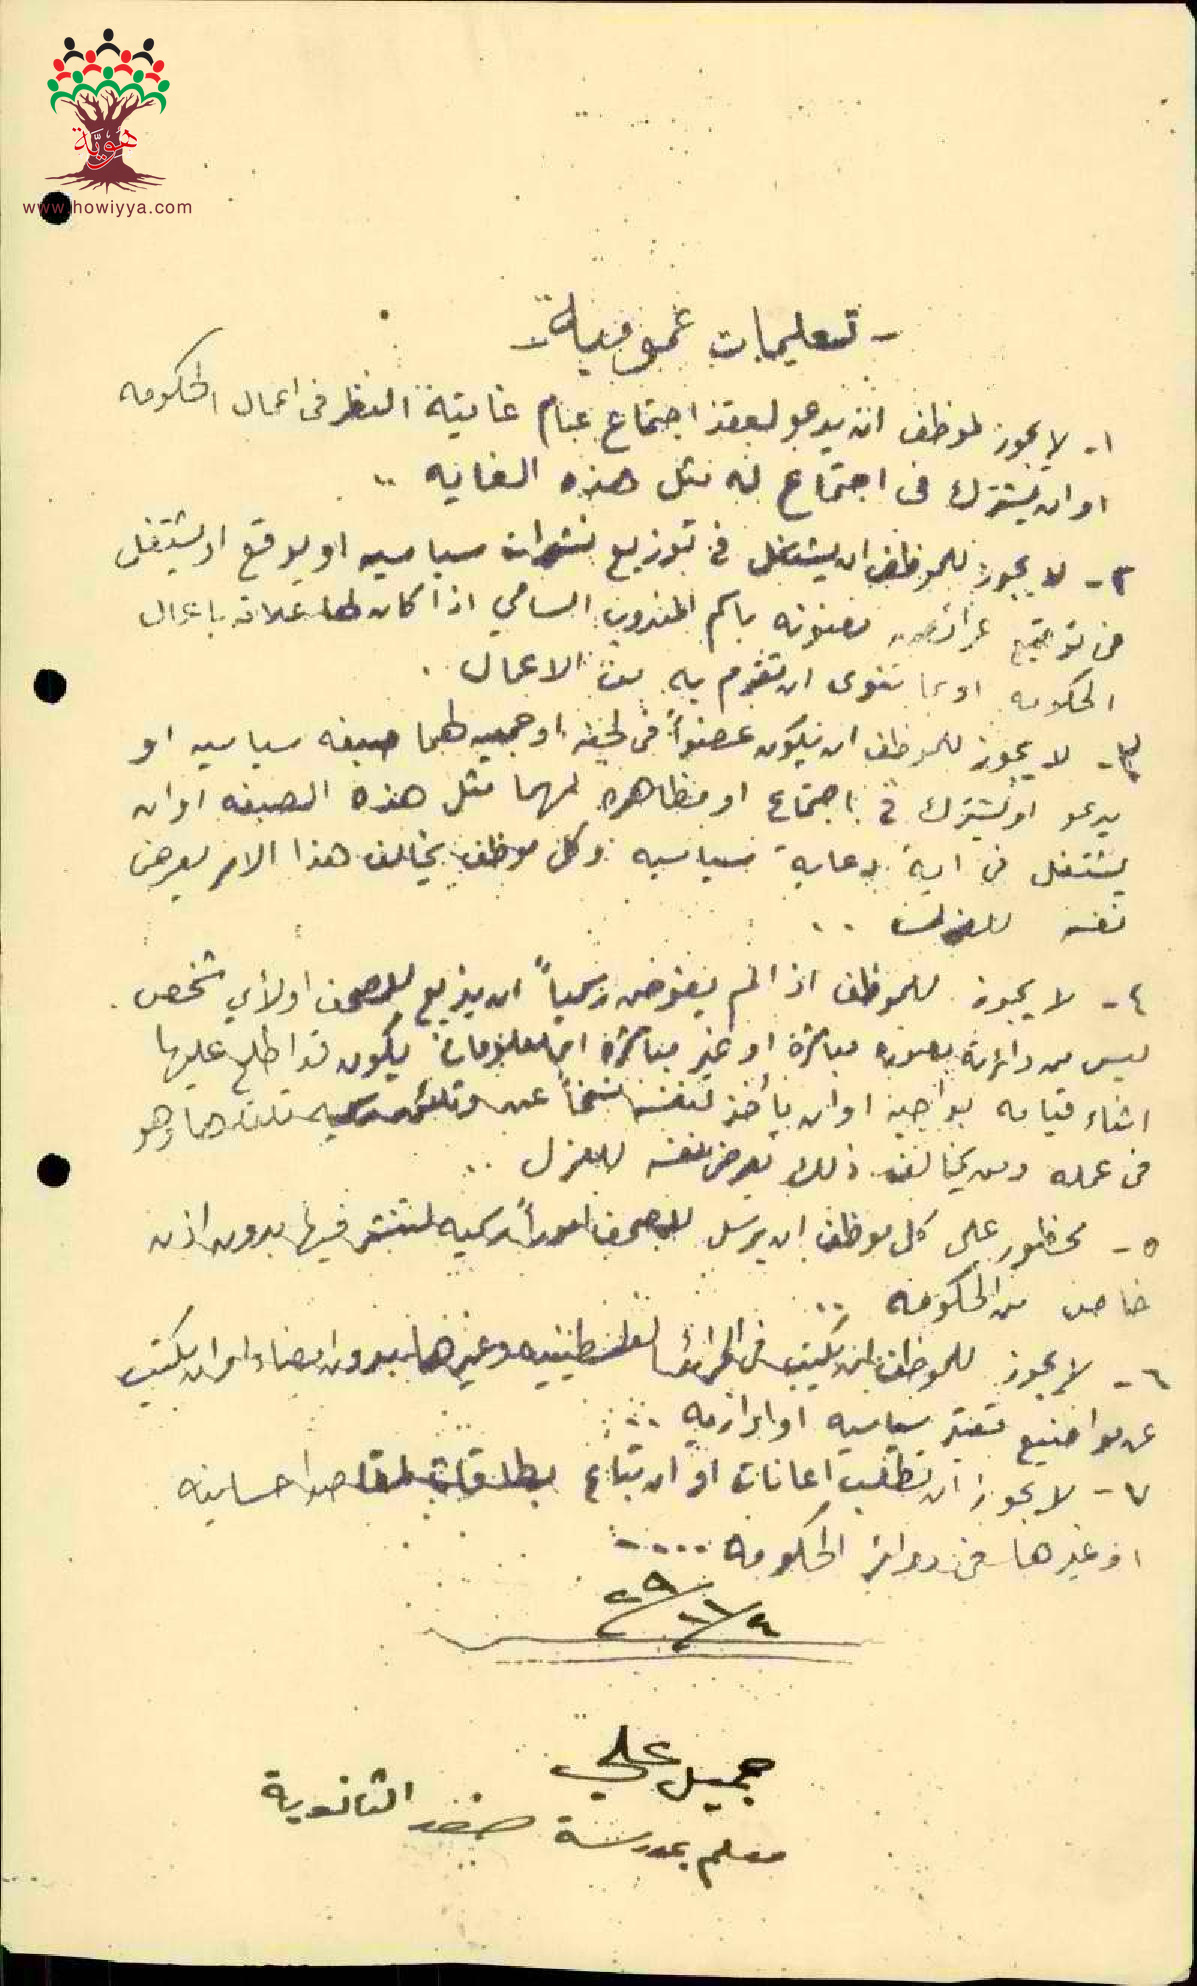 هوية
www.howiyya.com
- تعليمات عمومية -
١- لا يجوز لموظف ان يدعو لعقد اجتماع عام غايته النظر في اعمال الحكومه
او ان يشترك في اجتماع له مثل هذه الغايه ..
٢- لا يجوز للموظف ان يشتغل في توزيع نشرات سياسيه او يوقع او يشتغل
في توقيع عرائض معنونه باسم المندوب السامي اذا كان لها علاقه باعمال
الحكومه او بما تنوى ان تقوم به من الاعمال .
٣- لا يجوز للموظف ان يكون عضواً في لجنه او جمعيه لهما صبغه سياسيه او
يدعو او يشترك في اجتماع او مظاهره لهما مثل هذه الصبغه او ان
يشتغل في اية دعاية سياسيه وكل موظف يخالف هذا الامر يعرض
نفسه للعزل ..
٤- لا يجوز للموظف اذا لم يفوض رسمياً ان يذيع للصحف او لأي شخص
ليس من دائرته بصوره مباشرة او غير مباشرة اية معلومات يكون قد اطلع عليها
اثناء قيامه بواجبه او ان يأخذ لنفسه نسخاً عن وثائق رسميه تلقاها وهو
في عمله ومن يخالف ذلك يعرض نفسه للعزل ..
٥- محظور على كل موظف ان يرسل للصحف اموراً رسميه لتنشر فيها بدون اذن
خاص من الحكومه ..
٦- لا يجوز للموظف ان يكتب في الجرائد الفلسطينيه وغيرها بدون امضاء او ان يكتب
عن مواضيع تعتبر سياسيه او اداريه ..
٧- لا يجوز ان تطلب اعانات او ان تباع بطاقات لمقاصد احسانيه
او غيرها في دوائر الحكومه ....
٤/١١/٢٩
جميل علي
معلم بمدرسة صفد الثانوية